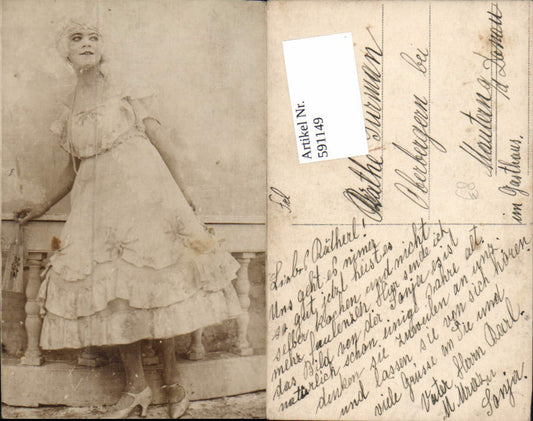 Artikel Nr.
591149
Frl.
Käthe Surman
Oberbergern bei
Mautern a/ Donau
im Gasthaus.
Liebes Kätherl!
Uns geht es nimmer
so gut, jetzt heist es
selber kochen und nicht
mehr faulenzen. Hier sende ich
das Bild von der Sonja es ist
natürlich schon einige Jahre alt.
denken Sie zuweilen an uns.
und lassen Sie von sich hören.
viele Grüsse an Sie und
Vater Herrn Karl.
M.
Sonja.